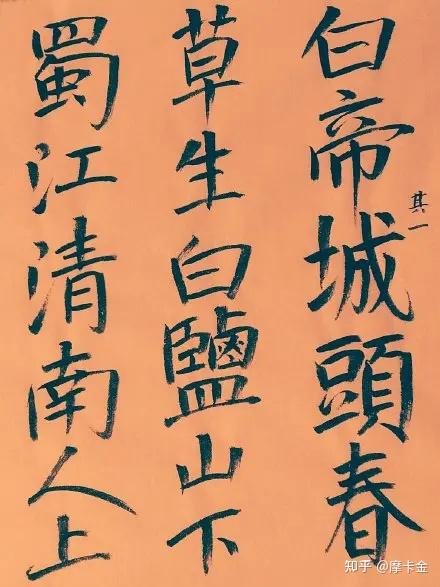 白帝城頭春
其一
草生白鹽山下
蜀江清南人上
知乎 @摩卡金